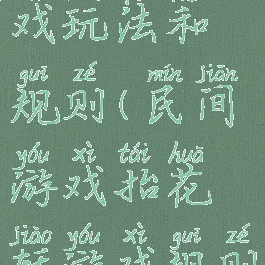 戏玩法和
guī zé mín jiān
规则(民间
yóu xì tái huā
游戏抬花
jiào yóu xì guī zé
轿游戏规则